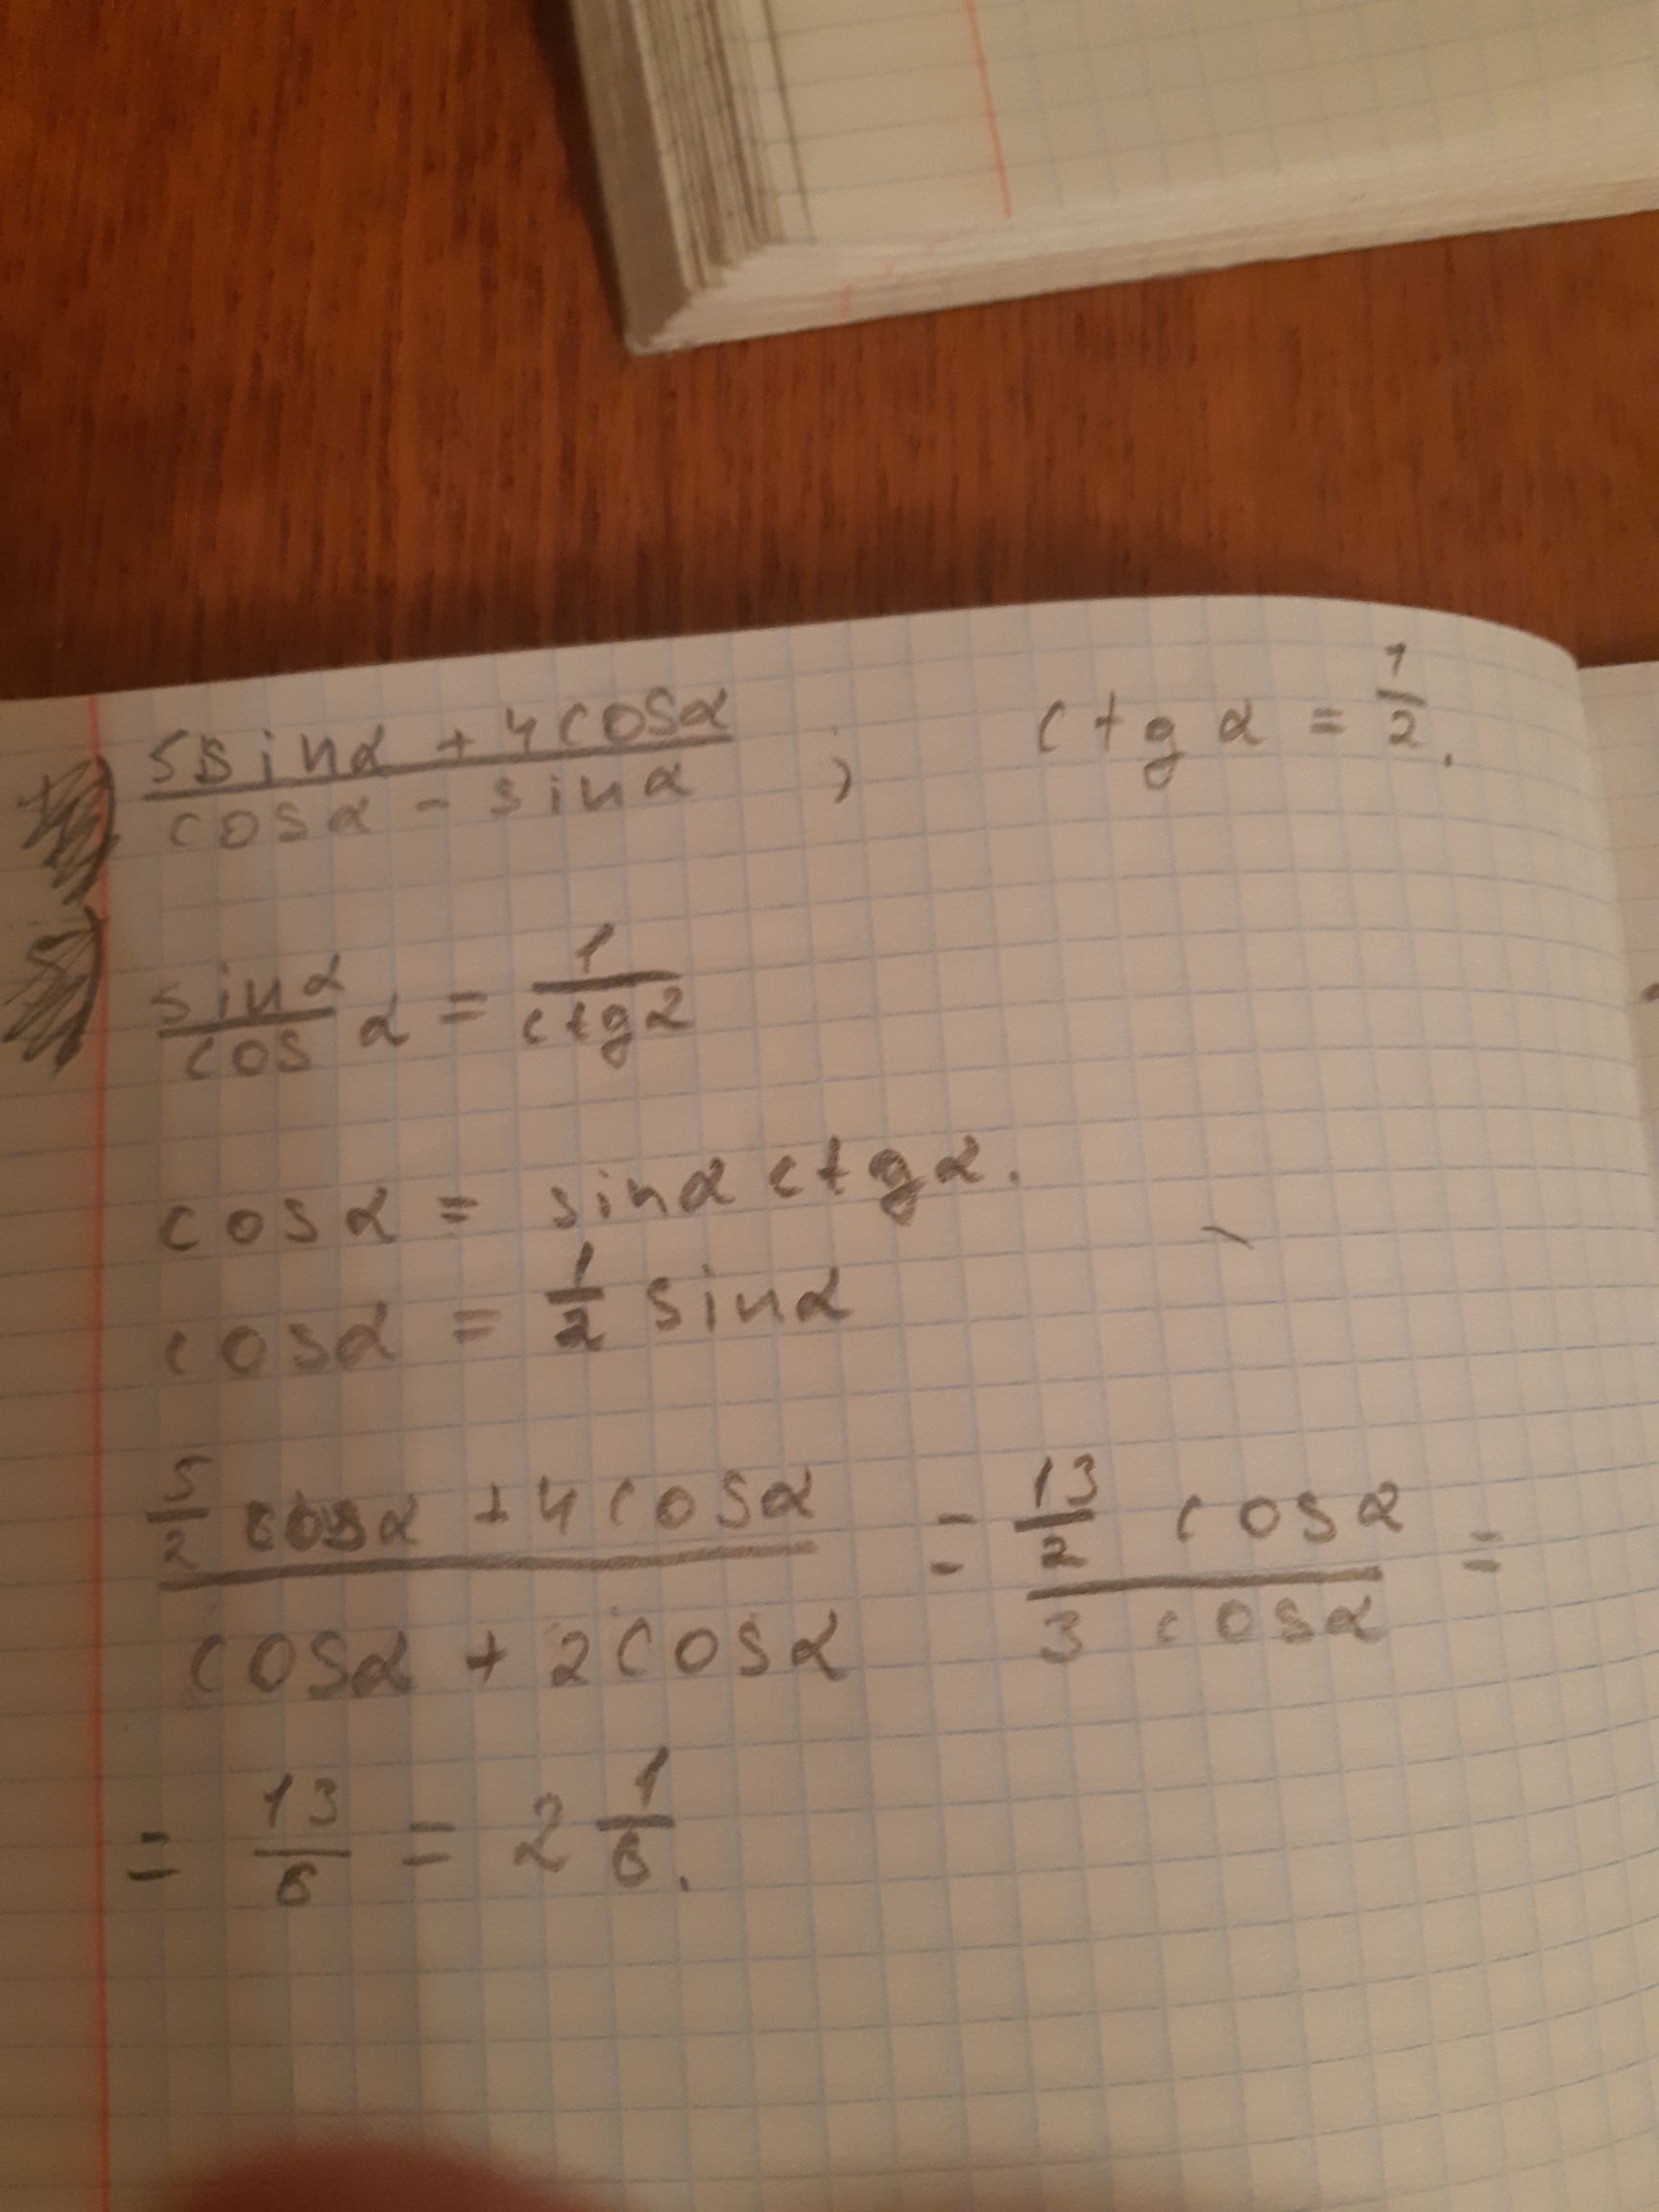 5sinα + 4cosα / cosα - sinα ; ctgα = 1/2.
sinα/cos α = 1/ctg2
cosα = sinα ctgα.
cosα = 1/2 sinα
5/2 cosα + 4cosα / cosα + 2cosα = 13/2 cosα / 3 cosα =
= 13/6 = 2 1/6.